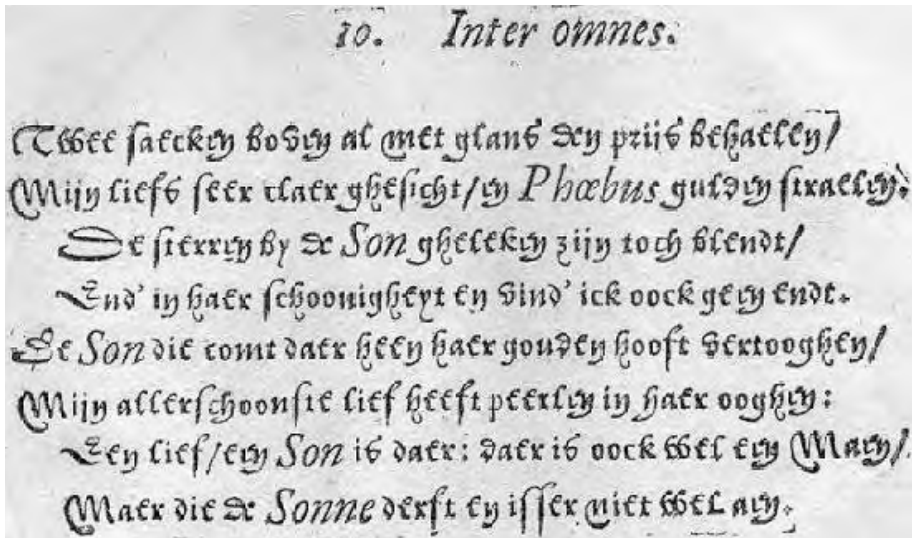 10. Inter omnes.
Twee saecken boven al met glans den prijs behaelen/
Mijn liefs seer claer ghesicht/en Phœbus gulden straelen.
De sterren by de Son gheleken zijn toch blendt/
End' in haer schoonigheyt en vind' ick oock geen endt.
De Son die comt daer heen haer gouden hooft vertooghen/
Mijn allerschoonste lief heeft peerlen in haer ooghen:
Een lief/een Son is daer: daer is oock wel een Maen/
Maer die de Sonne derft en isser niet wel aen.